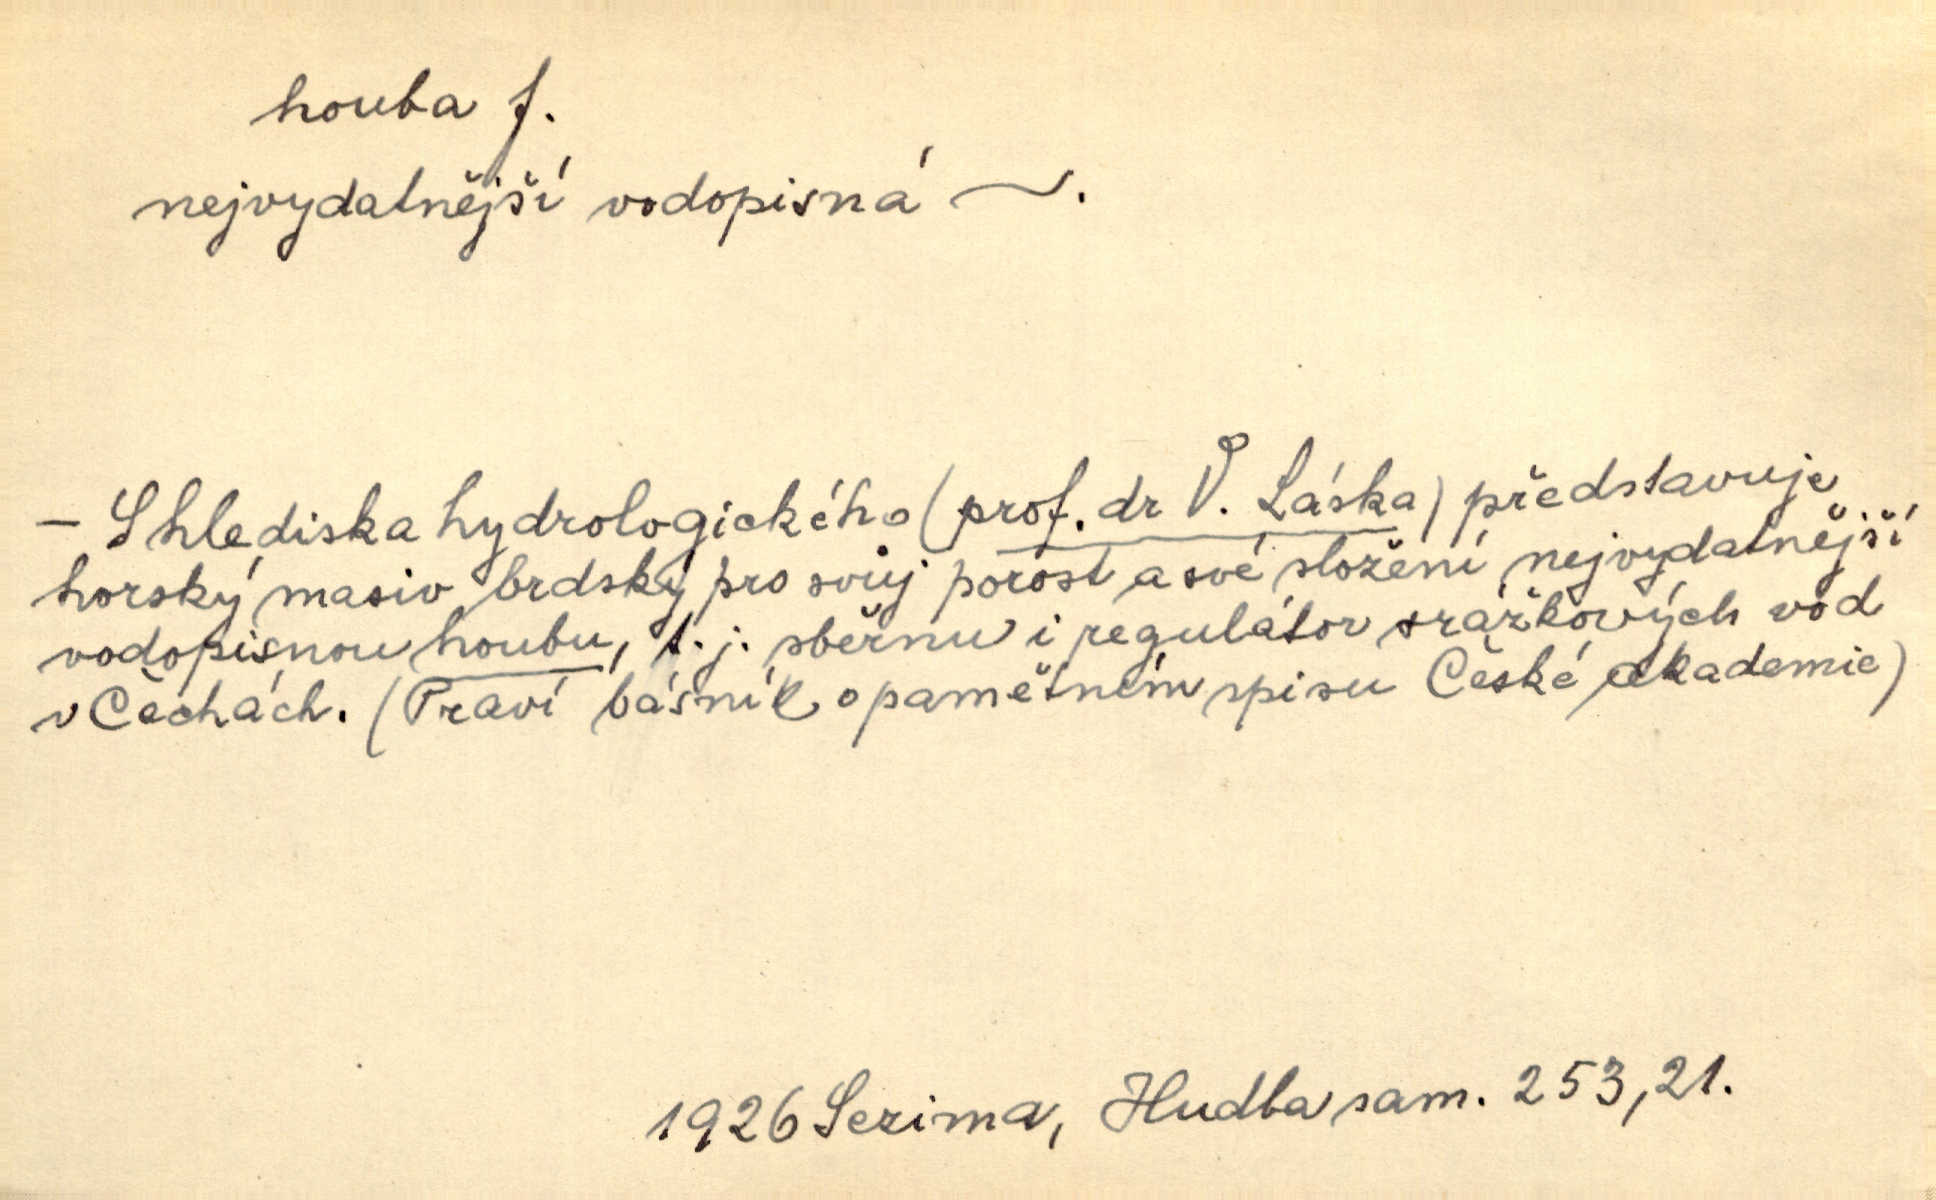 houba f.
nejvydatnější vodopisná ~.
– S hlediska hydrologického (prof. dr V. Láska) představuje
horský masiv brdský pro svůj porost a své složení nejvydatnější
vodopisnou houbu, t. j. sběrnu i regulátor srážkových vod
v Čechách. (Praví básník o pamětném spisu České akademie)
1926 Sezima, Hudba sam. 253,21.